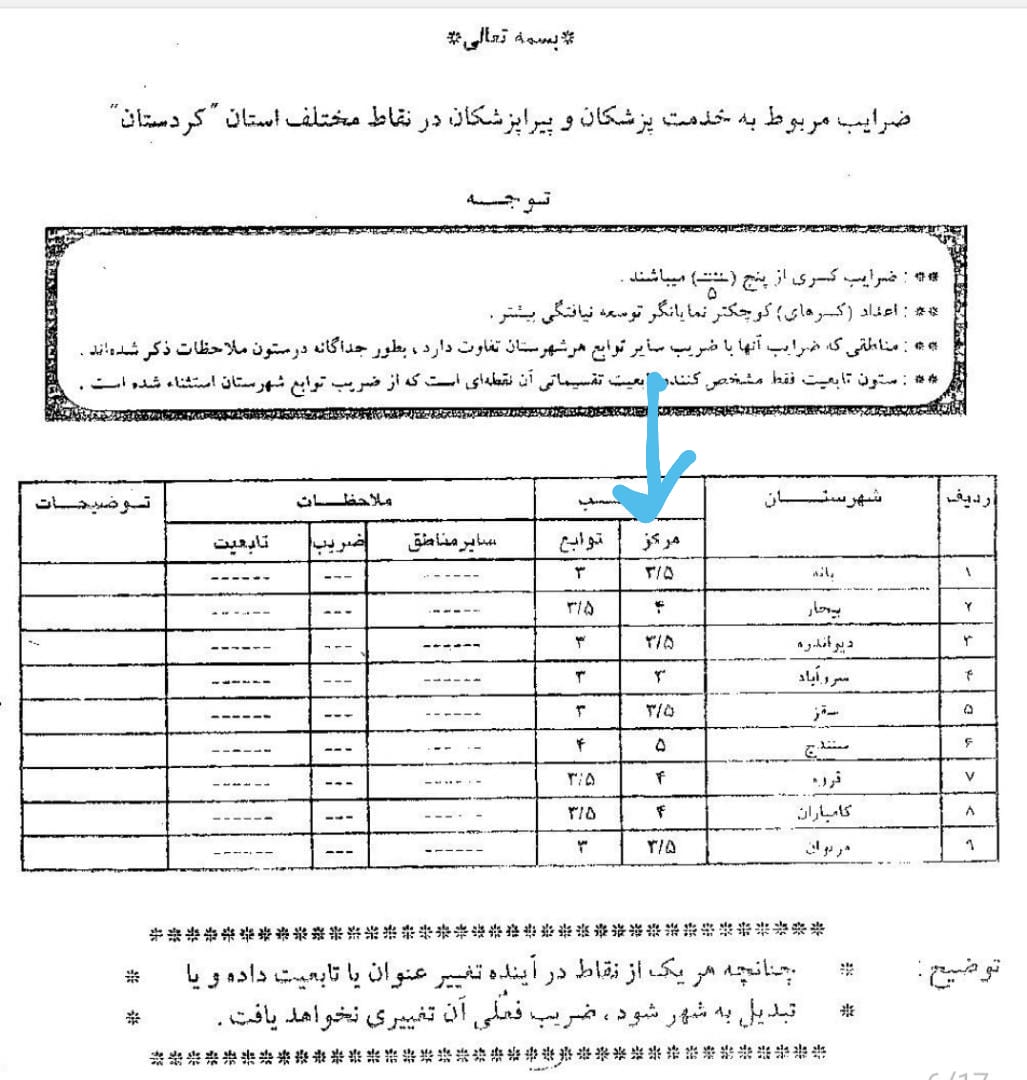 *بسمه تعالی*
ضرایب مربوط به خدمت پزشکان و پیراپزشکان در نقاط مختلف استان "کردستان"
توجـــه
** : ضرایب کسری از پنج (۵/) میباشند .
** : اعداد (کسرهای) کوچکتر نمایانگر توسعه نیافتگی بیشتر .
** : مناطقی که ضرایب آنها با ضریب سایر توابع هرشهرستان تفاوت دارد ، بطور جداگانه درستون ملاحظات ذکر شده‌اند .
** : ستون تابعیت فقط مشخص کننده تابعیت تقسیماتی آن نقطه‌ای است که از ضریب توابع شهرستان استثناء شده است .
ردیف شهرستـــان ملاحظـــات تـوضیحـات
مرکز توابع سایرمناطق ضریب تابعیت
۱ بانه ۳/۵ ۳ ------ --- ------
۲ بیجار ۴ ۳/۵ ------ --- ------
۳ دیواندره ۳/۵ ۳ ------ --- ------
۴ سروآباد ۳ ۳ ------ --- ------
۵ سقز ۳/۵ ۳ ------ --- ------
۶ سنندج ۵ ۴ ------ --- ------
۷ قروه ۴ ۳/۵ ------ --- ------
۸ کامیاران ۴ ۳/۵ ------ --- ------
۹ مریوان ۳/۵ ۳ ------ --- ------
توضیح : * چنانچه هر یک از نقاط در آینده تغییر عنوان یا تابعیت داده و یا *
* تبدیل به شهر شود ، ضریب فعلی آن تغییری نخواهد یافت . *